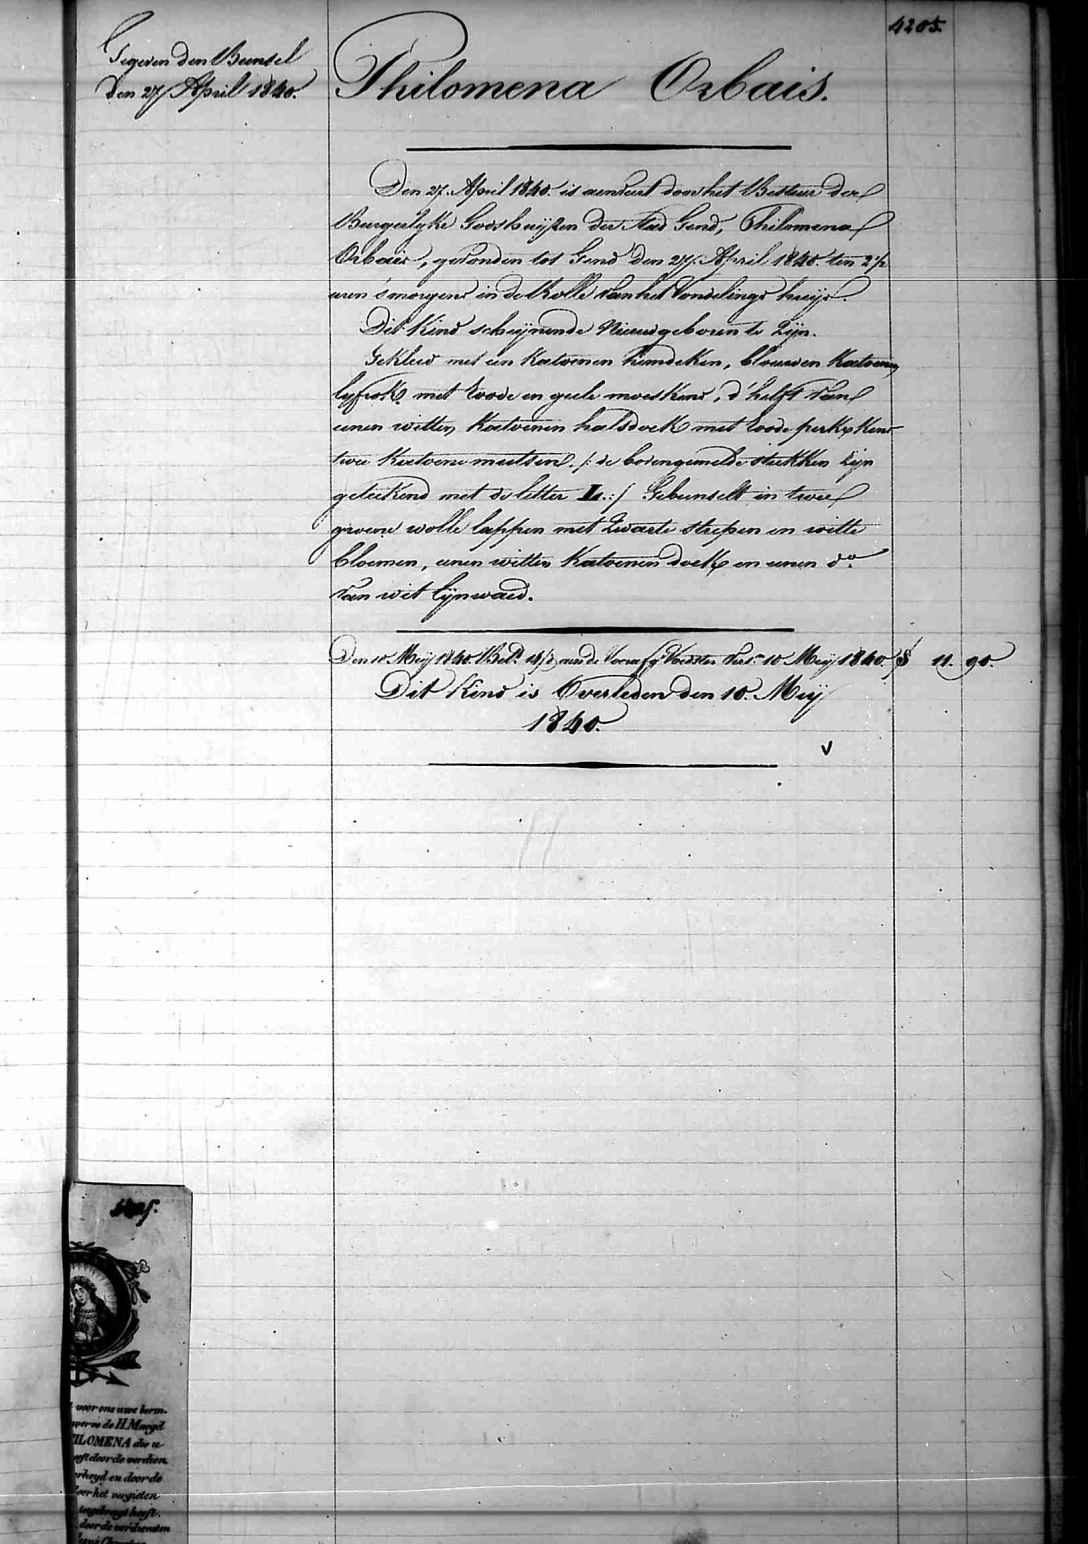 4205.
Gegeven den Bunsel
den 27 April 1840.
Philomena Orbais.
Den 27. April 1840. is aenveird door het Bestuur der
Burgerlyke Godshuijzen der Stad Gend, Philomena
Orbais, gevonden tot Gend den 27. April 1840. ten 2 1/2
uren s'morgens in de Rolle van het Vondelings huijs.
Dit Kind scheijnende Nieuwgeboren te Zijn.
Gekleed met een Katoenen hemdeken, blauwen Katoenen
lyfrok met roode en geele moeskens, d'helft van
eenen witten Katoenen halsdoek met roode perkxkens
twee Katoene mutsen. /: de bovengemelde stukken zijn
geteekend met de letter L.:/ Gebunselt in twee
groene wolle lappen met zwarte strepen en witte
bloemen, eenen witten Katoenen doek en eenen do.
van wit lijnwaed.
Den 10. Meij 1840. aan de Voedster 10 Meij 1840. 11. 90.
Dit Kind is Overleden den 10. Meij
1840.
V
4205.
voor ons uwe barm-
de H. Maegd
ILOMENA die u
door de verdien-
heyd en door de
door het vergieten
heeft.
door de verdiensten